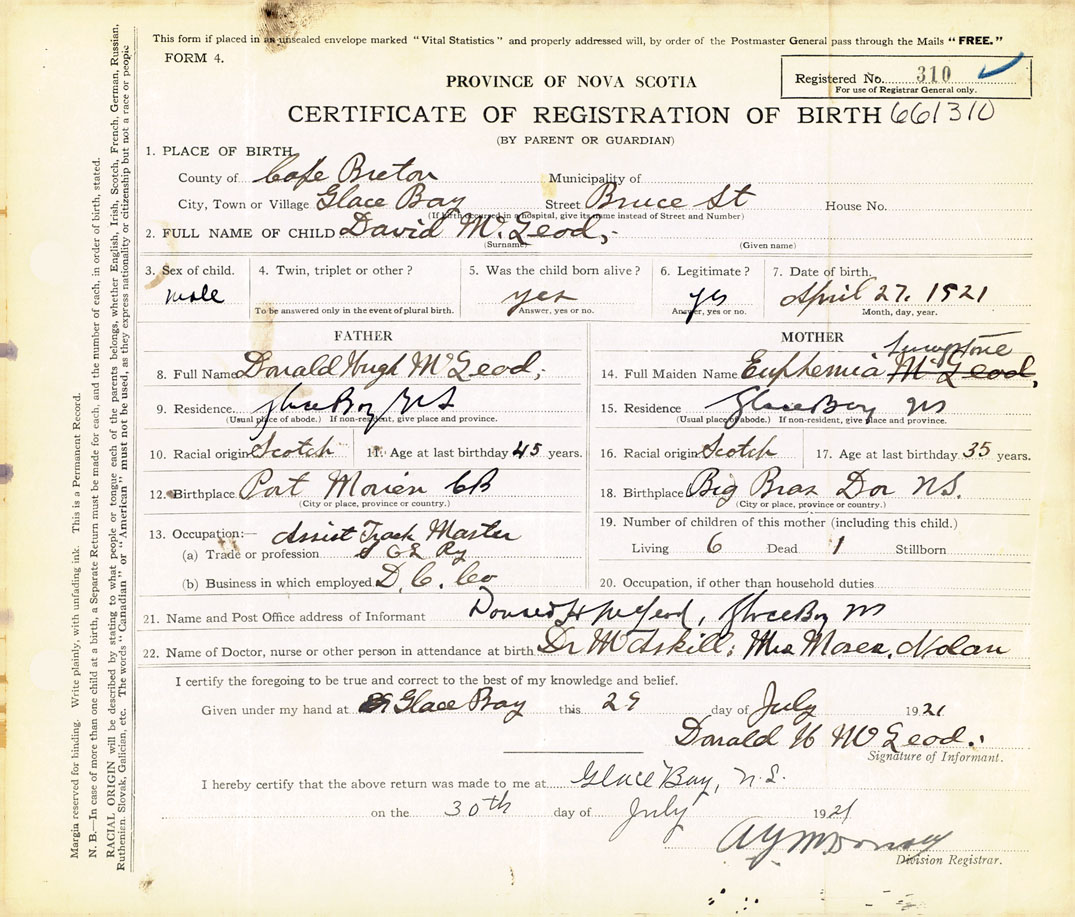 This form if placed in an unsealed envelope marked "Vital Statistics" and properly addressed will, by order of the Postmaster General pass through the Mails "FREE."
FORM 4.
Registered No. 310
For use of Registrar General only.
PROVINCE OF NOVA SCOTIA
CERTIFICATE OF REGISTRATION OF BIRTH 661310
(BY PARENT OR GUARDIAN)
1. PLACE OF BIRTH
County of Cape Breton Municipality of
City, Town or Village Glace Bay Street Bruce St House No.
(If birth occurred in a hospital, give its name instead of Street and Number)
2. FULL NAME OF CHILD David McLeod,-
(Surname) (Given name)
3. Sex of child. 4. Twin, triplet or other? 5. Was the child born alive? 6. Legitimate? 7. Date of birth.
male yes yes April 27. 1921
To be answered only in the event of plural birth. Answer, yes or no. Answer, yes or no. Month, day, year.
FATHER
8. Full Name Donald Hugh McLeod,-
9. Residence Glace Bay NS
(Usual place of abode.) If non-resident, give place and province.
10. Racial origin Scotch 11. Age at last birthday 45 years.
12. Birthplace Port Morien CB
(City or place, province or country.)
13. Occupation:— Assist Track Master
(a) Trade or profession Ry
(b) Business in which employed D. C. Co
MOTHER
Livingstone
14. Full Maiden Name Euphemia McLeod,
15. Residence Glace Bay NS
(Usual place of abode.) If non-resident, give place and province.
16. Racial origin Scotch 17. Age at last birthday 35 years.
18. Birthplace Big Bras Dor N.S.
(City or place, province or country.)
19. Number of children of this mother (including this child.)
Living 6 Dead 1 Stillborn
20. Occupation, if other than household duties
21. Name and Post Office address of Informant Donald H McLeod, Glace Bay NS
22. Name of Doctor, nurse or other person in attendance at birth Dr McAskill; Mrs Moses Nolan
I certify the foregoing to be true and correct to the best of my knowledge and belief.
Given under my hand at Glace Bay this 29 day of July 1921
Donald H McLeod.
Signature of Informant.
I hereby certify that the above return was made to me at Glace Bay, N.S.
on the 30th day of July 1921
Division Registrar.
Margin reserved for binding. Write plainly, with unfading ink. This is a Permanent Record.
N. B.—In case of more than one child at a birth, a Separate Return must be made for each, and the number of each, in order of birth, stated.
RACIAL ORIGIN will be described by stating to what people or tongue each of the parents belongs, whether English, Irish, Scotch, French, German, Russian,
Ruthenien, Slovak, Galician, etc. The words "Canadian" or "American" must not be used, as they express nationality or citizenship but not a race or people